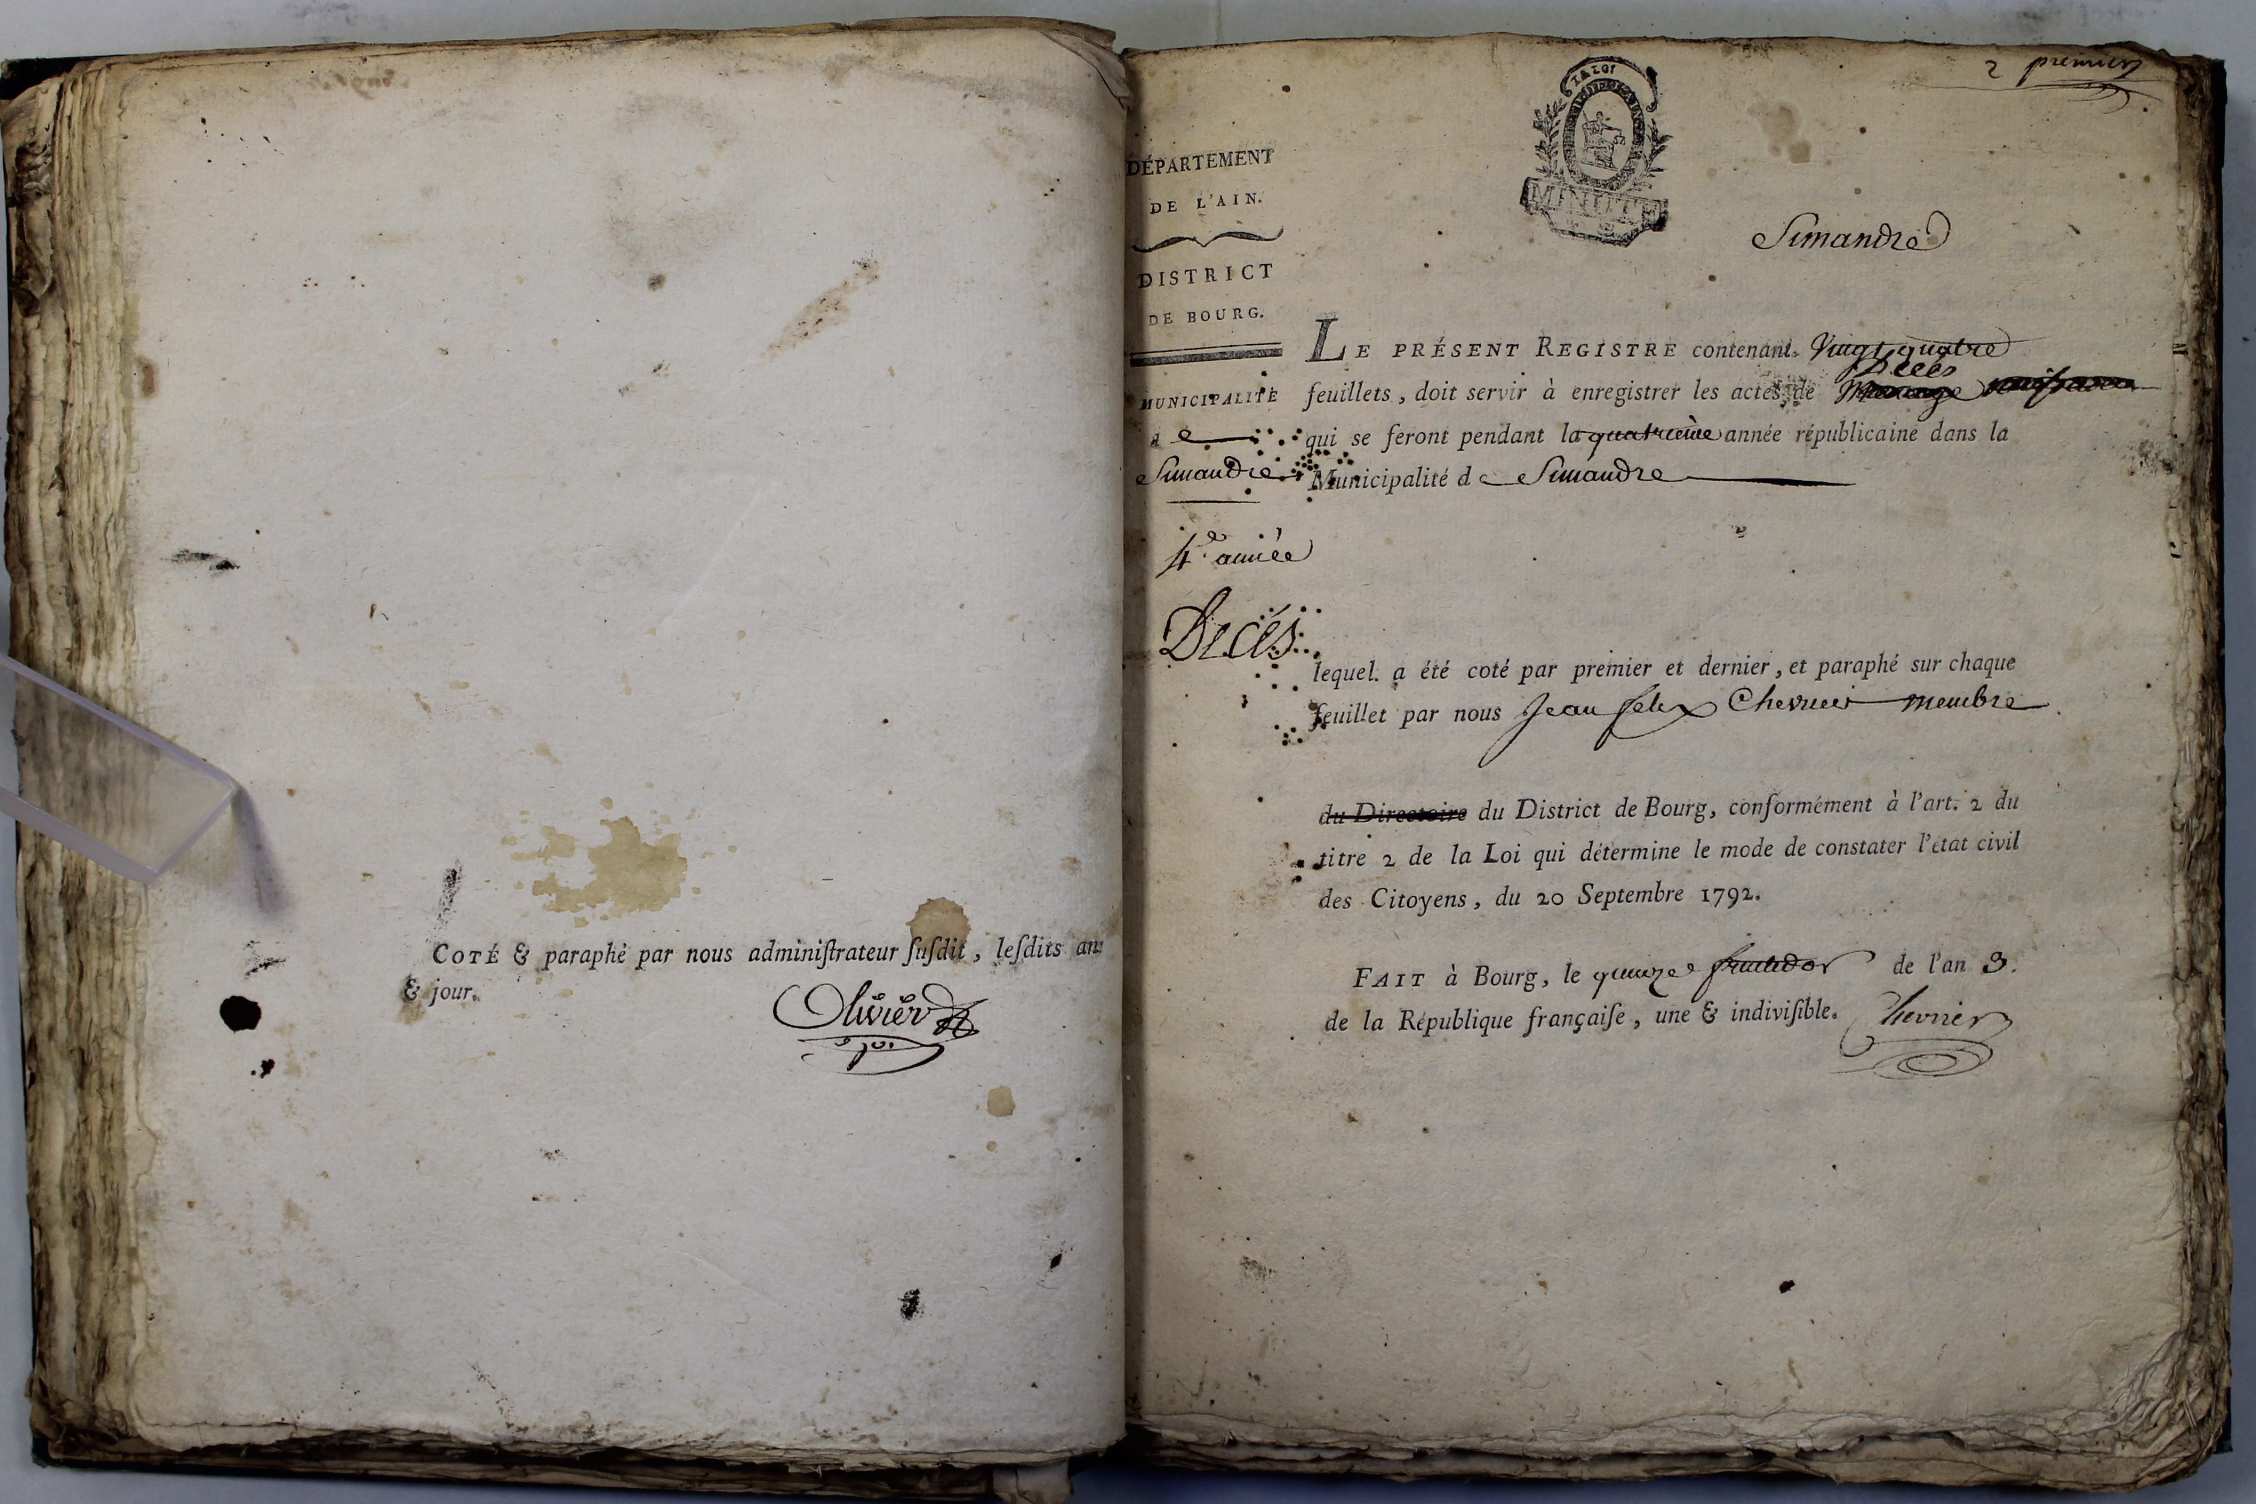 COTÉ & paraphé par nous adminiſtrateur ſuſdit, leſdits an
& jour.
Olivier
2 premier
LA LOI
MINUTE
DÉPARTEMENT
DE L'AIN.
DISTRICT
DE BOURG.
MUNICIPALITÉ
de
Simandre
4e année
Décès
Simandre
LE PRÉSENT REGISTRE contenant vingt quatre
Décès
feuillets, doit servir à enregistrer les actes de Mariage naissance
qui se feront pendant la quatrieme année républicaine dans la
Municipalité de Simandre
lequel a été coté par premier et dernier, et paraphé sur chaque
feuillet par nous Jean felix Chevrier membre
du Directoire du District de Bourg, conformément à l'art. 2 du
titre 2 de la Loi qui détermine le mode de constater l'état civil
des Citoyens, du 20 Septembre 1792.
FAIT à Bourg, le quinze fructidor de l'an 3.
de la République françaiſe, une & indiviſible. Chevrier